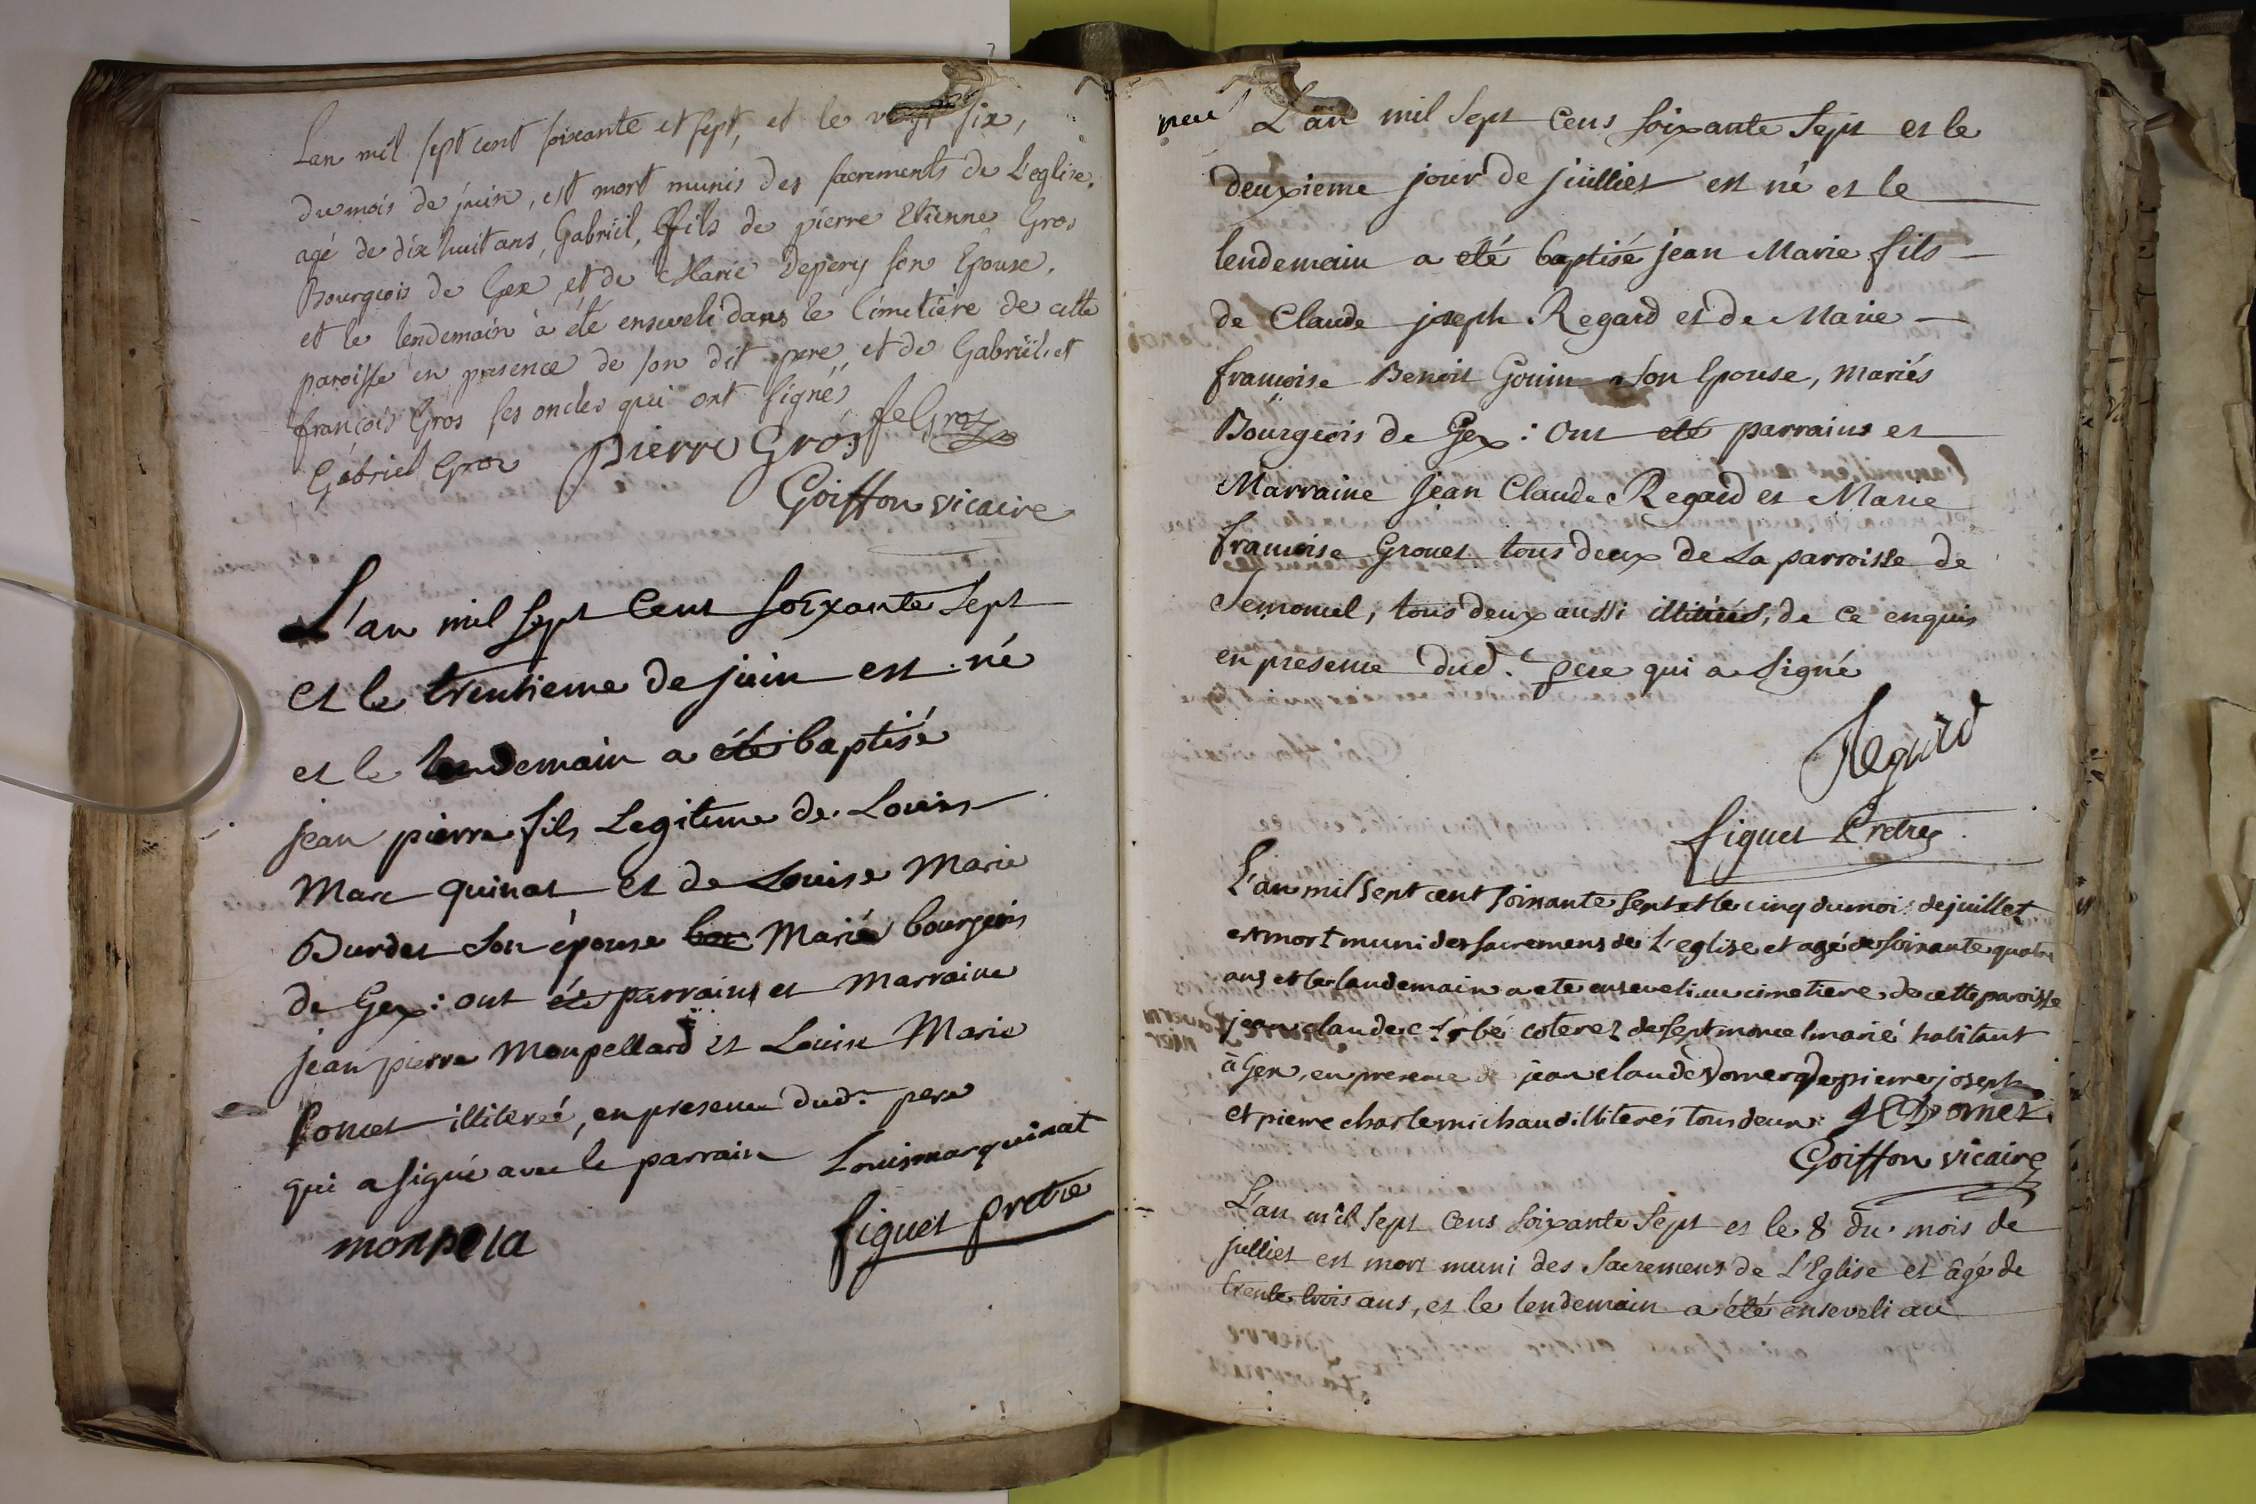 Lan mil sept cent soixante et sept, et le vingt six,
du mois de juin, est mort munis des sacrements de L'eglise.
agé de dix huit ans, Gabriël, fils de pierre Etienne Gros
Bourgeois de Gex, et de Marie Depery son Epouse,
et le lendemain à été enseveli dans le Cimetière de cette
paroisse en presence de son dit pere, et de Gabriël, et
françois Gros ses oncles qui ont signés
Gabriel Gros pierre Gros feGros
Goiffon vicaire
L'an mil sept Cent soixante sept
et le trentieme de juin est né
et le lendemain a été baptisé
jean pierre fils Legitime de Louis
Marc quinat et de Louise Marie
Burdet son épouse bou Mariés bourgeois
de Gex : ont été parrains et Marraine
jean pierre Monpellard et Louise Marie
Poncet illiterée, en presence dud. pere
qui a signé avec le parrain Louismarquinat
monpela figuet pretre
L'an mil sept Cens soixante sept et le
deuxieme jour de juilliet est né et le
lendemain a été baptisé jean Marie fils
de Claude joseph Regard et de Marie
françoise Benoit Gouin son Epouse, mariés
Bourgeois de Gex : Ont été parrains et
Marraine jean Claude Regard et Marie
françoise Grouet tous deux de La parroisse de
Semoncel, tous deux aussi illitérés, de ce enquis
en presence dud. pere qui a signé
Regard
figuet Pretre
L'an mil sept cent soixante sept et le cinq du mois de juillet
est mort muni des sacremens de L'eglise et agé de soixante quatre
ans et le landemain a ete enseveli au cimetiere de cette paroisse
jean claude coterez de septmoncel marié habitant
à Gex, en presence de jean claude Domerg de pierre joseph
et pierre charle michaud illiterés tous deux JCDomez
Goiffon vicaire
L'an mil sept Cens soixante sept et le 8 du mois de
julliet est mort muni des sacremens de L'Eglise et âgé de
trente trois ans, et le lendemain a été enseveli au